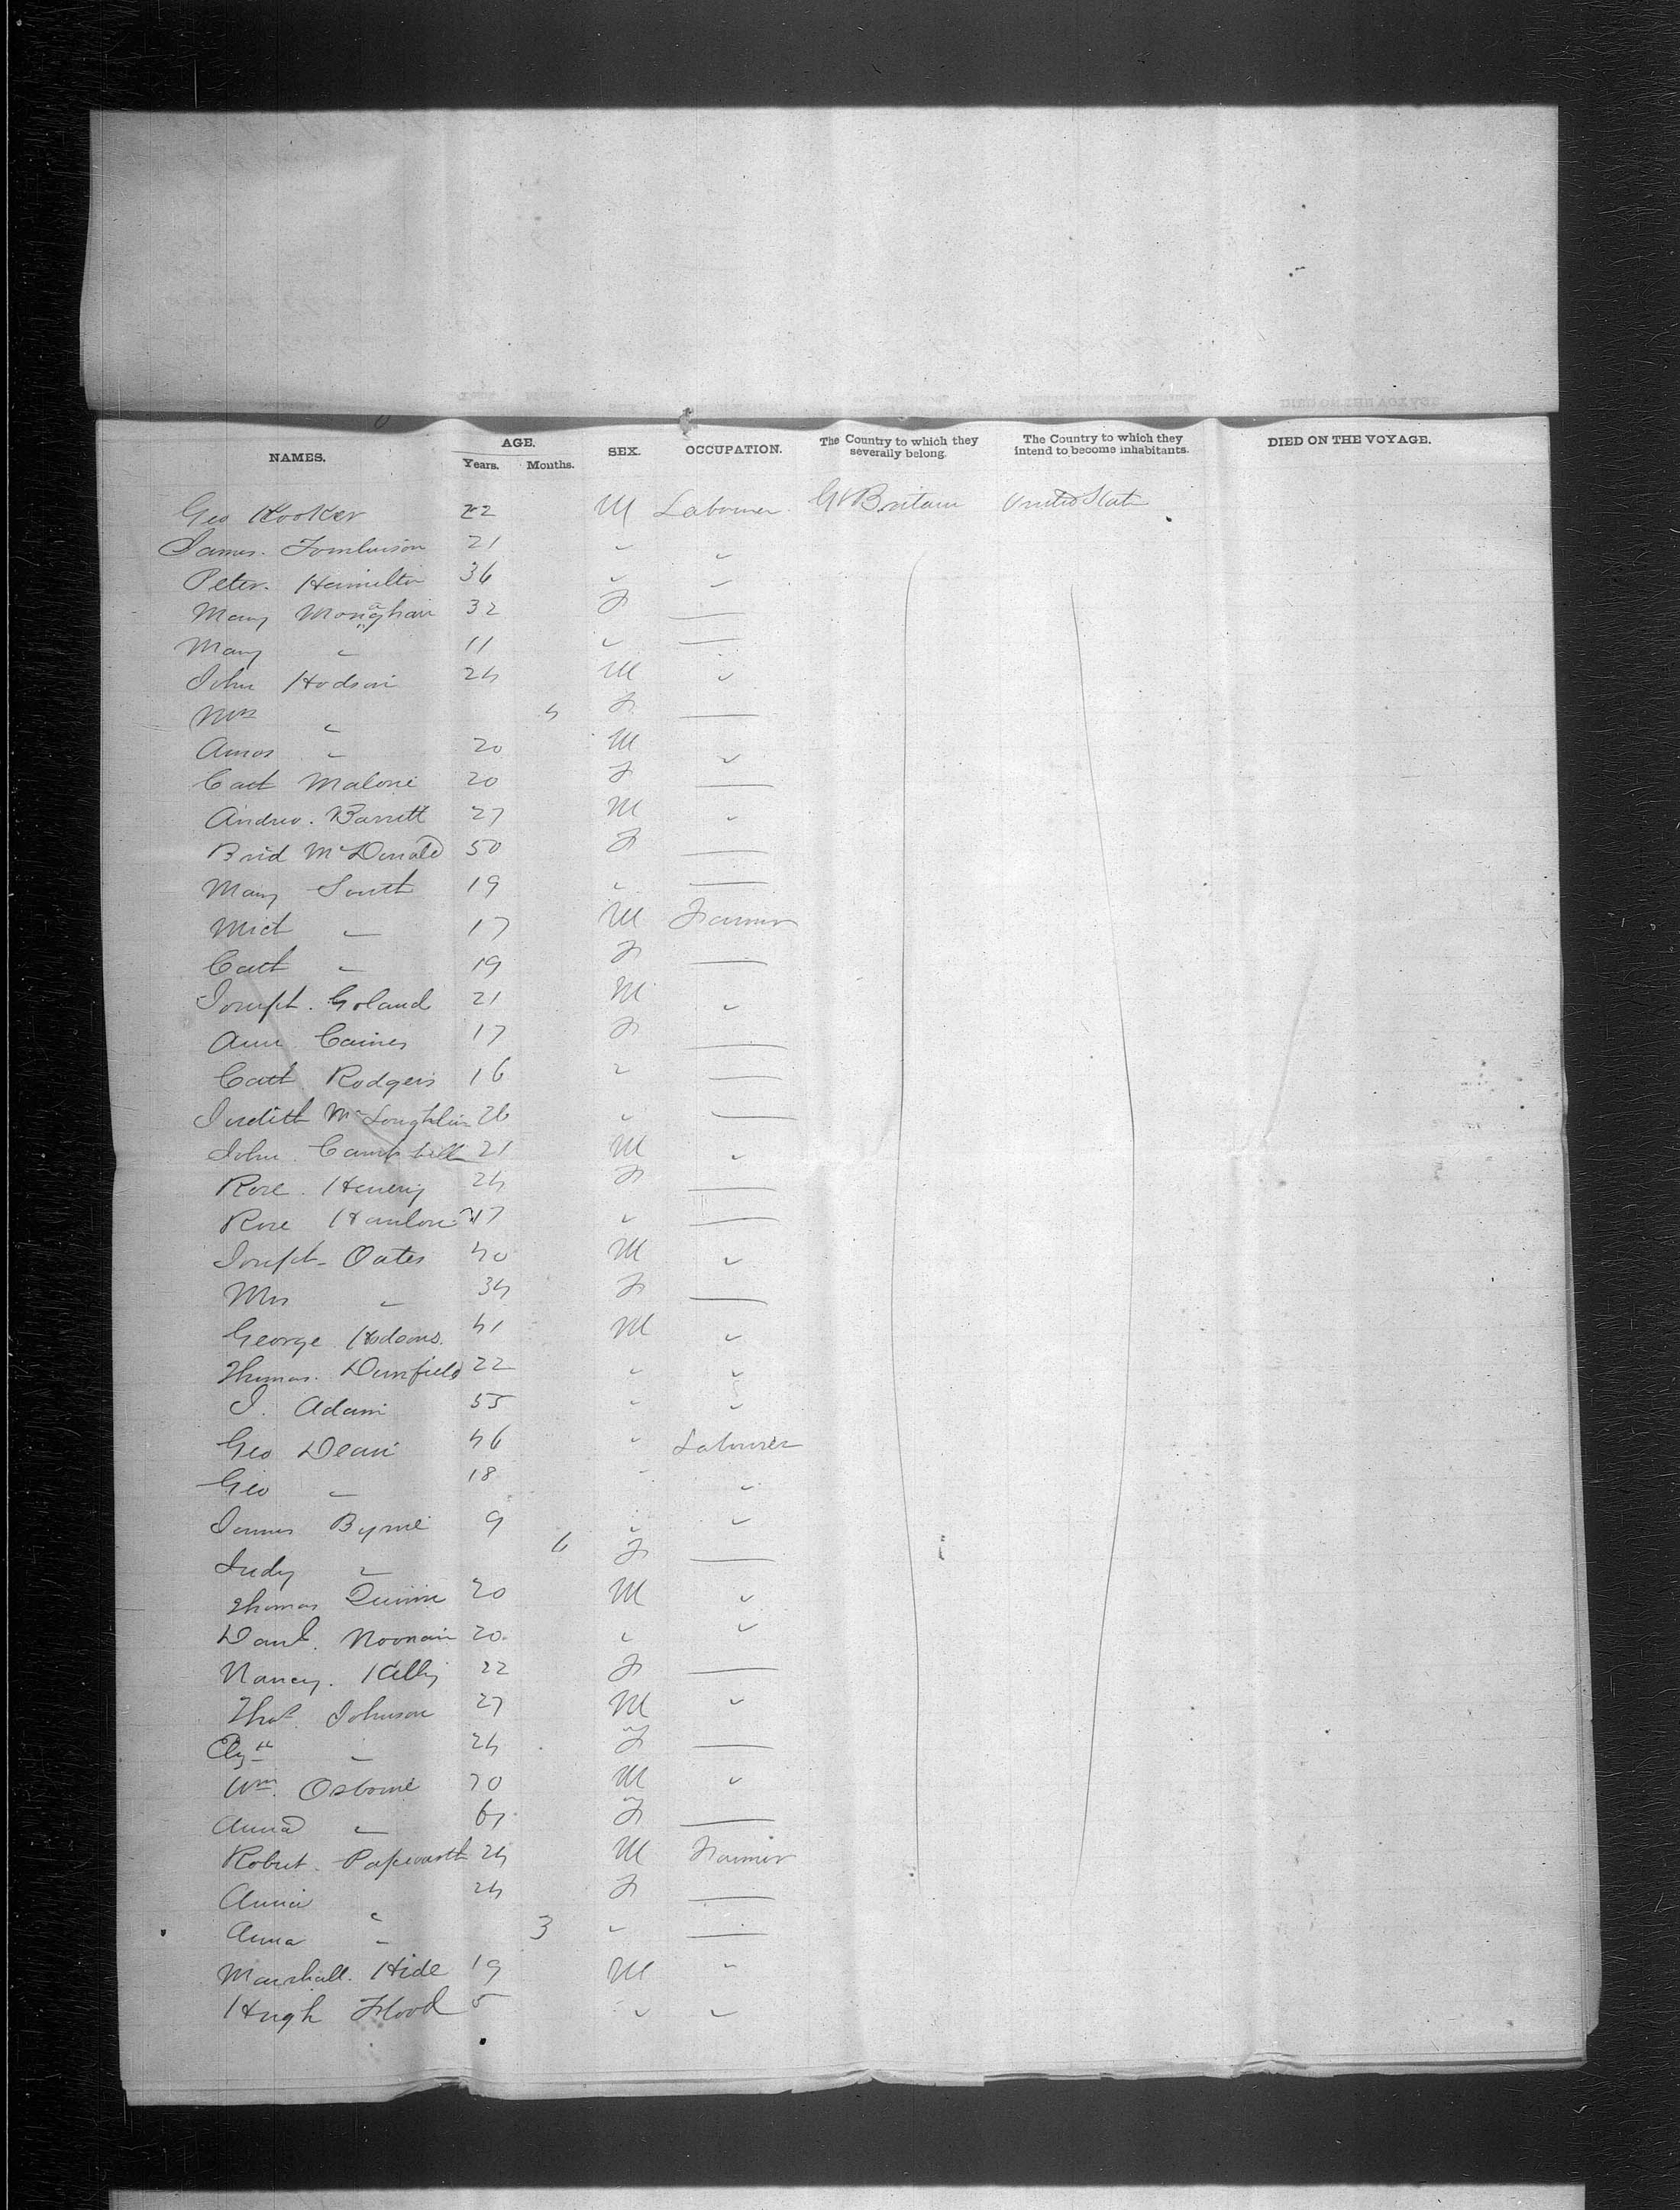 NAMES. AGE. Years. Months. SEX. OCCUPATION. The Country to which they severally belong. The Country to which they intend to become inhabitants. DIED ON THE VOYAGE.
Geo Hooker 22 M Labourer Gt Britain United State
James. Tomlinson 21 " "
Peter. Hamilton 36 " "
Mary Monaghan 32 F —
Mary " 11 " —
John Hodson 24 M "
Mrs " 4 F —
Amos " 20 M "
Cath Malone 20 F —
Andrew. Barrett 27 M "
Brid McDonald 50 F —
Mary South 19 " —
Mich " 17 M Farmer
Cath " 19 F —
Joseph. Goland 21 M "
Ann Caines 17 F —
Cath Rodgers 16 " —
Judith McLoughlin 26 " —
John Campbell 21 M "
Rose. Henery 24 F —
Rose Hanlon 17 " —
Joseph Oates 40 M "
Mrs " 34 F —
George Hodsons. 41 M "
Thomas. Dunfield 22 " "
J. Adam 55 " "
Geo Dean 46 " Labourer
Geo " 18 " "
James Byrne 9 " "
Judy " 6 F —
Thomas Quinn 20 M "
Danl. Noonan 20 " "
Nancy. Kelly 22 F —
Thos. Johnson 27 M "
Elyth " 24 F —
Wm. Osborne 70 M "
Anna " 67 F —
Robert. Papworth 24 M Farmer
Anna " 24 F —
Anna " 3 " —
Marshall. Hide 19 M "
Hugh Flood 5 " "